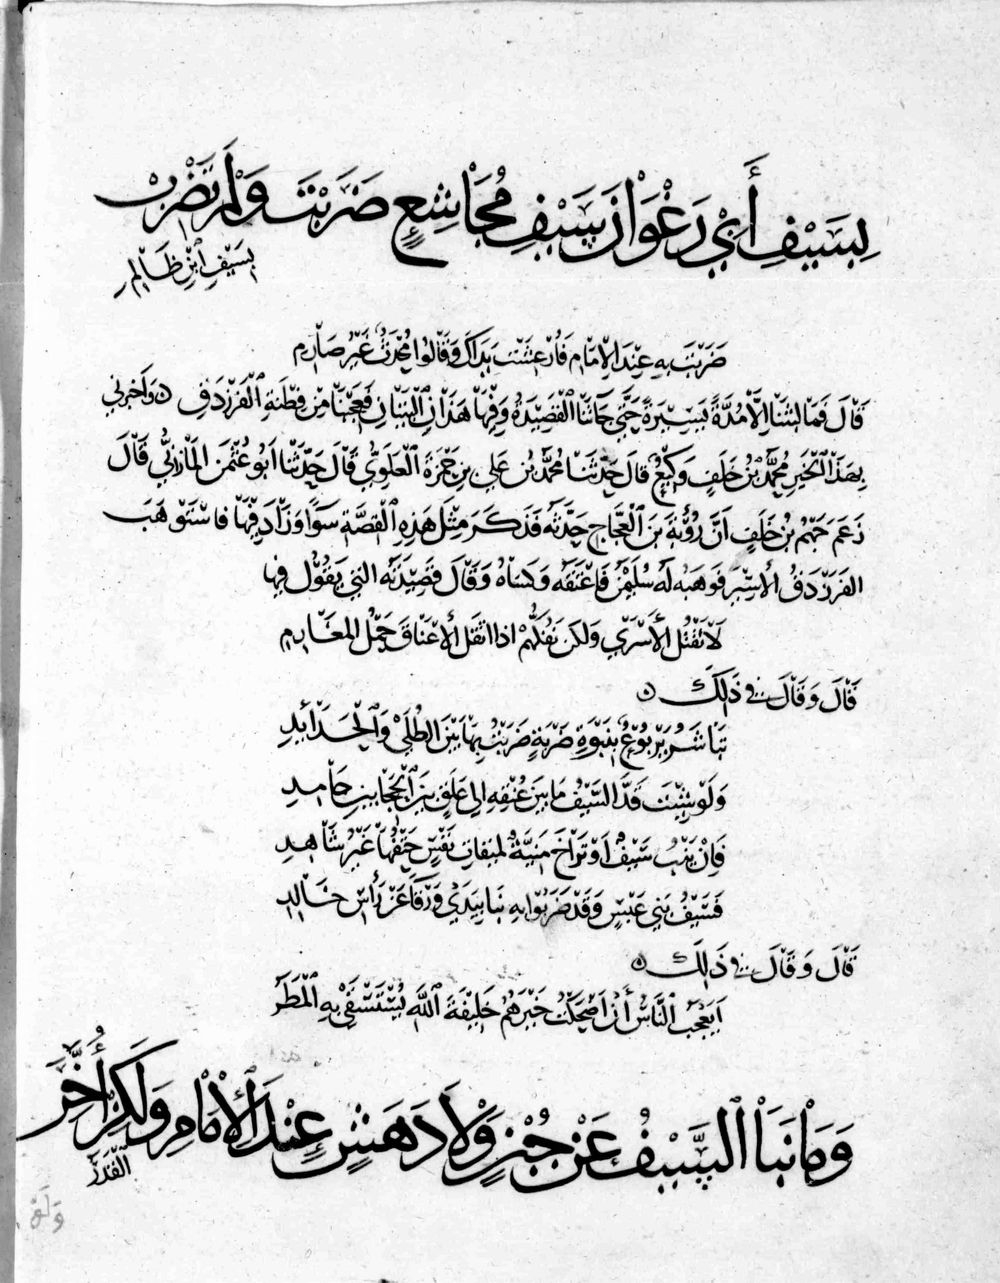 بِسَيْفِ أَبِي رَغْوَانَ سَيْفِ مُجَاشِعٍ ضَرَبْتَ وَلَمْ تَضْرِبْ
بِسَيْفِ ابْنِ ظَالِمِ
ضَرَبْتَ بِهِ عِنْدَ الْإِمَامِ فَأُرْعِشَتْ يَدَاكَ وَقَالُوا مُحْدَثٌ غَيْرُ صَارِمِ
قَالَ فَمَا لَبِثْنَا إِلَّا مُدَّةً يَسِيرَةً حَتَّى جَاءَتْنَا الْقَصِيدَةُ وَفِيهَا هَذَانِ الْبَيْتَانِ فَعَجِبْنَا مِنْ فِطْنَةِ الْفَرَزْدَقِ ه وَأَخْبَرَنِي
بِهَذَا الْخَبَرِ مُحَمَّدُ بْنُ خَلَفٍ وَكِيعٌ قَالَ حَدَّثَنَا مُحَمَّدُ بْنُ عَلِيِّ بْنِ حَمْزَةَ الْعَلَوِيُّ قَالَ حَدَّثَنَا أَبُو عُثْمَنَ الْمَازِنِيُّ قَالَ
زَعَمَ جَهْمُ بْنُ خَلَفٍ أَنَّ رُؤْبَةَ بْنَ الْعَجَّاجِ حَدَّثَهُ فَذَكَرَ مِثْلَ هَذِهِ الْقِصَّةِ سَوَاءً وَزَادَ فِيهَا فَاسْتَوْهَبَ
الْفَرَزْدَقُ الْأَسِيرَ فَوَهَبَهُ لَهُ سُلَيْمَنُ فَأَعْتَقَهُ وَكَسَاهُ وَقَالَ قَصِيدَتَهُ الَّتِي يَقُولُ فِيهَا
لَا نَقْتُلُ الْأَسْرَى وَلَكِنْ نَفُكُّهُمْ إِذَا أَثْقَلَ الْأَعْنَاقَ حَمْلُ الْمَغَارِمِ
قَالَ وَقَالَ فِي ذَلِكَ ه
تَبَاشَرُ يَرْبُوعٌ بِنَبْوَةِ ضَرْبَةٍ ضَرَبْتُ بِهَا بَيْنَ الطُّلَى وَالْحَدَائِدِ
وَلَوْ شِئْتَ قَدَّ السَّيْفُ مَا بَيْنَ عُنْقِهِ إِلَى عَلَقٍ بَيْنَ الْحِجَابَيْنِ جَامِدِ
فَإِنْ يَنْبُ سَيْفٌ أَوْ تَرَاخَ مَنِيَّةٌ لِمِيقَاتِ نَفْسٍ حَتْفُهَا غَيْرُ شَاهِدِ
فَسَيْفُ بَنِي عَبْسٍ وَقَدْ ضَرَبُوا بِهِ نَبَا بِيَدَيْ وَرْقَاءَ عَنْ رَأْسِ خَالِدِ
قَالَ وَقَالَ فِي ذَلِكَ ه
أَيَعْجَبُ النَّاسُ أَنْ أَضْحَكْتُ خَيْرَهُمُ خَلِيفَةَ اللَّهِ يُسْتَسْقَى بِهِ الْمَطَرُ
وَمَا نَبَا السَّيْفُ عَنْ جُبْنٍ وَلَا دَهَشٍ عِنْدَ الْإِمَامِ وَلَكِنْ أُخِّرَ
الْقَدَرُ
وَلَوْ